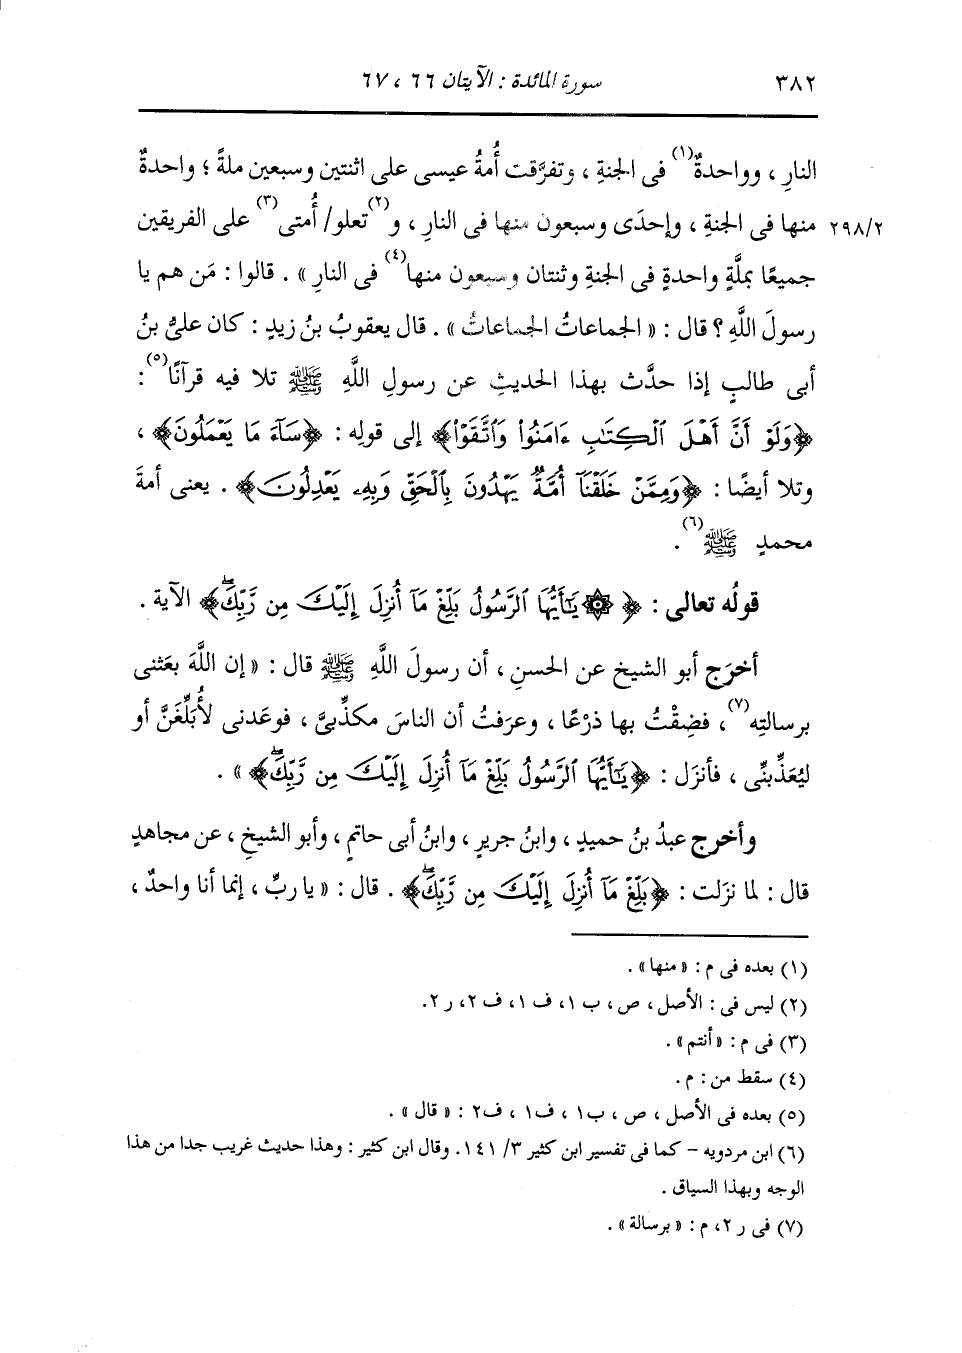 ٣٨٢ سورة المائدة : الآيتان ٦٦ ، ٦٧
النارِ ، وواحدةٌ(١) فى الجنةِ ، وتفرَّقت أُمةُ عيسى على اثنتين وسبعين ملةً ؛ واحدةٌ
٢٩٨/٢ منها فى الجنةِ ، وإحدَى وسبعون منها فى النارِ ، و(٢)تعلو/ أُمتى(٣) على الفريقين
جميعًا بملَّةٍ واحدةٍ فى الجنةِ وثنتان وسبعون منها(٤) فى النارِ » . قالوا : مَن هم يا
رسولَ اللَّهِ ؟ قال : « الجماعاتُ الجماعاتُ » . قال يعقوبُ بنُ زيدٍ : كان علىُّ بنُ
أبى طالبٍ إذا حدَّث بهذا الحديثِ عن رسولِ اللَّهِ ﷺ تلا فيه قرآنًا(٥) :
﴿وَلَوْ أَنَّ أَهْلَ ٱلْكِتَٰبِ ءَامَنُوا۟ وَٱتَّقَوْا۟﴾ إلى قولِه : ﴿سَآءَ مَا يَعْمَلُونَ﴾ ،
وتلا أيضًا : ﴿وَمِمَّنْ خَلَقْنَآ أُمَّةٌ يَهْدُونَ بِٱلْحَقِّ وَبِهِۦ يَعْدِلُونَ﴾ . يعنى أمةَ
محمدٍ ﷺ(٦) .
قولُه تعالى : ﴿ ۞ يَٰٓأَيُّهَا ٱلرَّسُولُ بَلِّغْ مَآ أُنزِلَ إِلَيْكَ مِن رَّبِّكَۖ﴾ الآية .
أخرَج أبو الشيخ عن الحسنِ ، أن رسولَ اللَّهِ ﷺ قال : « إن اللَّهَ بعَثنى
برسالتِه(٧) ، فضِقْتُ بها ذرْعًا ، وعرَفتُ أن الناسَ مكذِّبىَّ ، فوعَدنى لأُبَلِّغَنَّ أو
ليُعَذِّبنِّى ، فأنزَل : ﴿يَٰٓأَيُّهَا ٱلرَّسُولُ بَلِّغْ مَآ أُنزِلَ إِلَيْكَ مِن رَّبِّكَۖ﴾ » .
وأخرج عبدُ بنُ حميدٍ ، وابنُ جريرٍ ، وابنُ أبى حاتمٍ ، وأبو الشيخِ ، عن مجاهدٍ
قال : لما نزَلت : ﴿بَلِّغْ مَآ أُنزِلَ إِلَيْكَ مِن رَّبِّكَۖ﴾ . قال : « يا ربِّ ، إنما أنا واحدٌ ،
(١) بعده فى م : « منها » .
(٢) ليس فى : الأصل ، ص ، ب ١ ، ف ١ ، ف ٢ ، ر ٢ .
(٣) فى م : « أنتم » .
(٤) سقط من : م .
(٥) بعده فى الأصل ، ص ، ب١ ، ف١ ، ف٢ : « قال » .
(٦) ابن مردويه - كما فى تفسير ابن كثير ٣/ ١٤١ . وقال ابن كثير : وهذا حديث غريب جدا من هذا
الوجه وبهذا السياق .
(٧) فى ر ٢ ، م : « برسالة » .